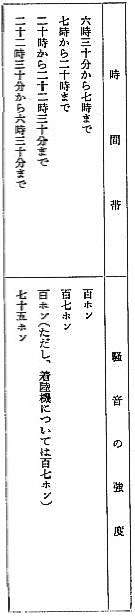 時間帯
騒音の強度
六時三十分から七時まで
百ホン
七時から二十時まで
百七ホン
二十時から二十二時三十分まで
百ホン(ただし、着陸機については百七ホン)
二十二時三十分から六時三十分まで
七十五ホン